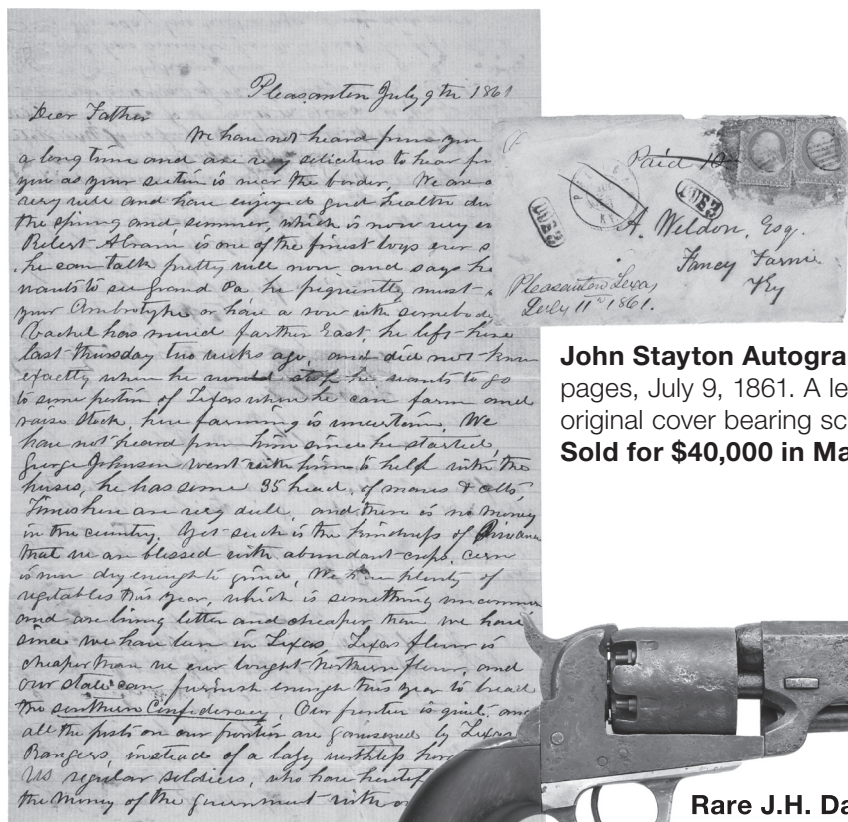 Pleasanton July 9th 1861
Dear Father
We have not heard from you
a long time and are very solicitous to hear fr
you as your section is near the border. We are a
very well and have enjoyed good health du
the spring and summer, which is now very
Robert Abram is one of the finest boys ever s
he can talk pretty well now and says he
wants to see Grand Pa he frequently must
your Ambrotype or have a row with somebod
Vachel has moved farther East, he left here
last Thursday two weeks ago, and did not know
exactly where he would stop he wants to go
to some portion of Texas where he can farm and
raise stock, here farming is uncertain. We
have not heard from him since he started,
George Johnson went with him to help with the
horses, he has some 35 head of mares & colts,
Times here are very dull, and there is no money
in the country. Yet such is the kindness of
that we are blessed with abundant crops, corn
is now dry enough to grind, We have plenty of
vegetables this year, which is something uncommon
and are living better and cheaper than we have
since we have been in Texas, Texas flour is
cheaper than we ever bought Northern flour, and
our state can furnish enough this year to bread
the southern Confederacy. Our frontier is quiet, and
all the posts on our frontier are garrisoned by Texas
Rangers, instead of a lazy worthless
US regular soldiers, who have
the money of the government with
Paid 10
DUE 3
DUE 3
A. Weldon, Esq.
Fancy Farm
Ky
Pleasanton Texas
July 11th 1861.
John Stayton Autogra
pages, July 9, 1861. A le
original cover bearing sc
Sold for $40,000 in Ma
Rare J.H. Da